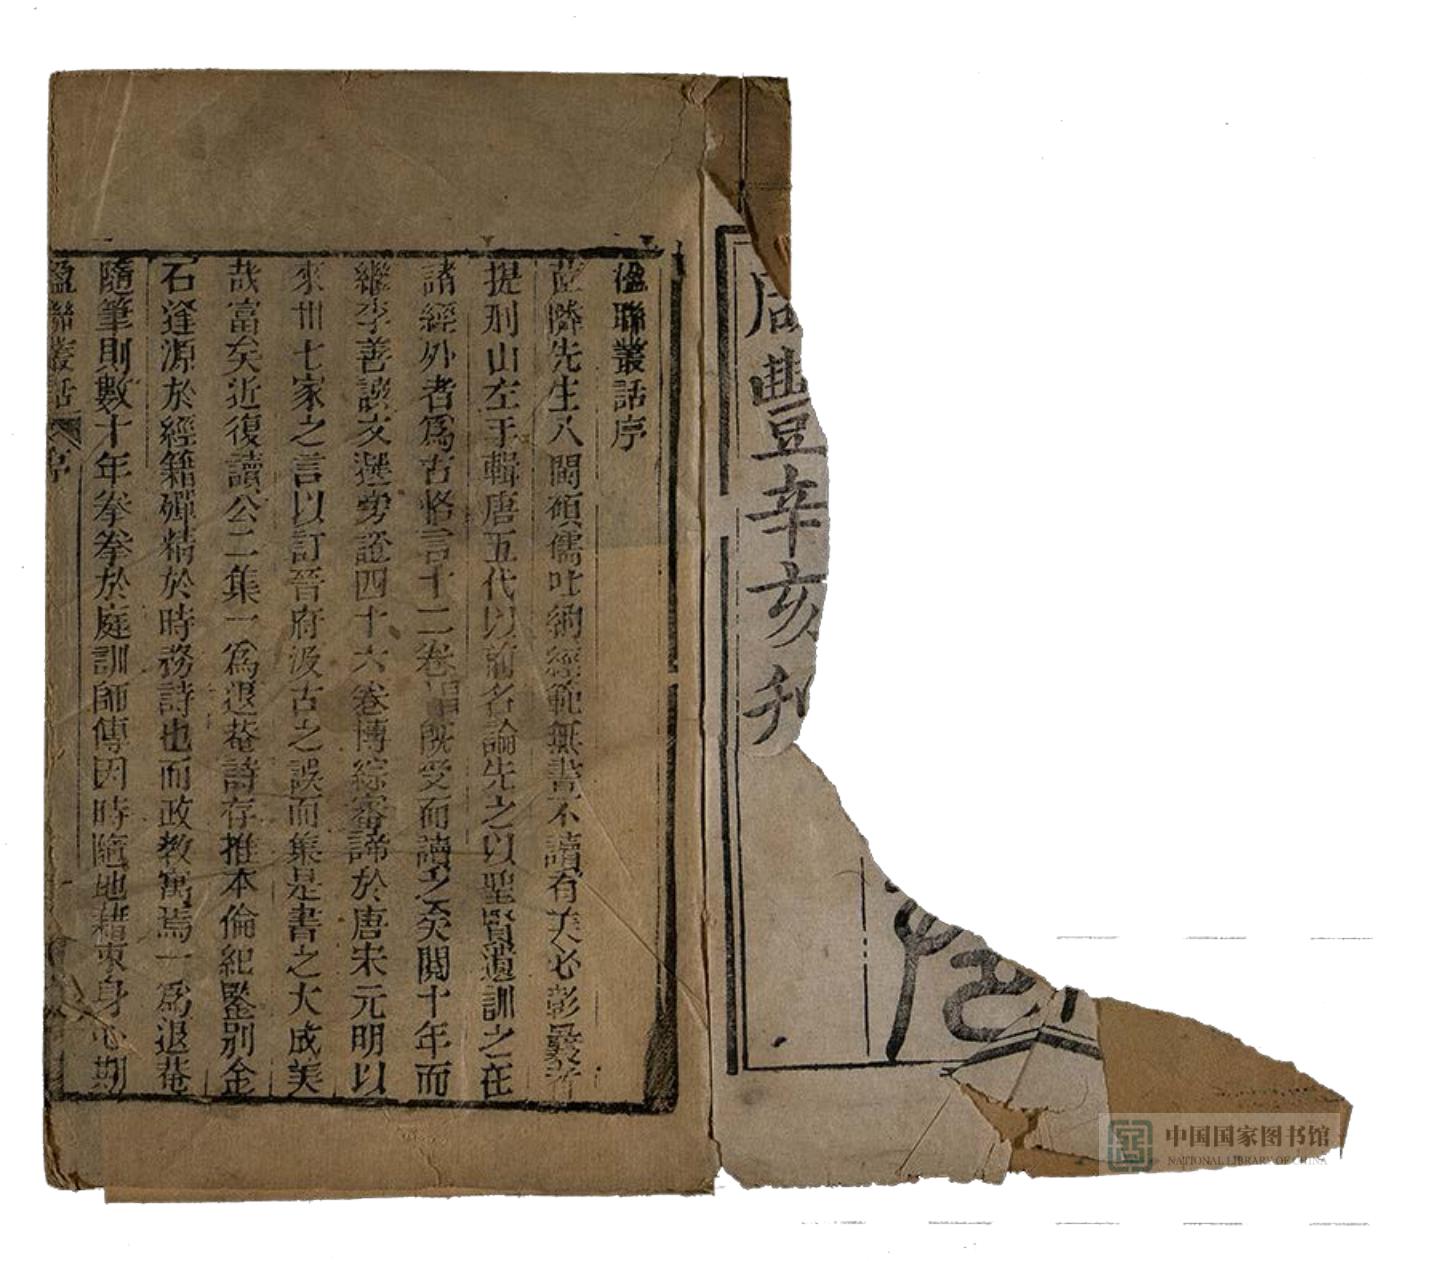 豐辛亥刊
楹聯叢話序
茝隣先生八閩碩儒吐納經範無書不讀有美必彰曩者
提刑山左手輯唐五代以前名論先之以聖賢遺訓之在
諸經外者為古格言十二卷 既受而讀之矣閱十年而
繼李善談文選旁證四十六卷博綜審諦於唐宋元明以
來卌七家之言以訂晉府汲古之誤而集是書之大成美
哉富矣近復讀公二集一為退菴詩存推本倫紀鑒別金
石逢源於經籍殫精於時務詩也而政教寓焉一為退菴
隨筆則數十年拳拳於庭訓師傳因時隨地藉束身心期
楹聯叢話 序
中国国家图书馆
NATIONAL LIBRARY OF CHINA